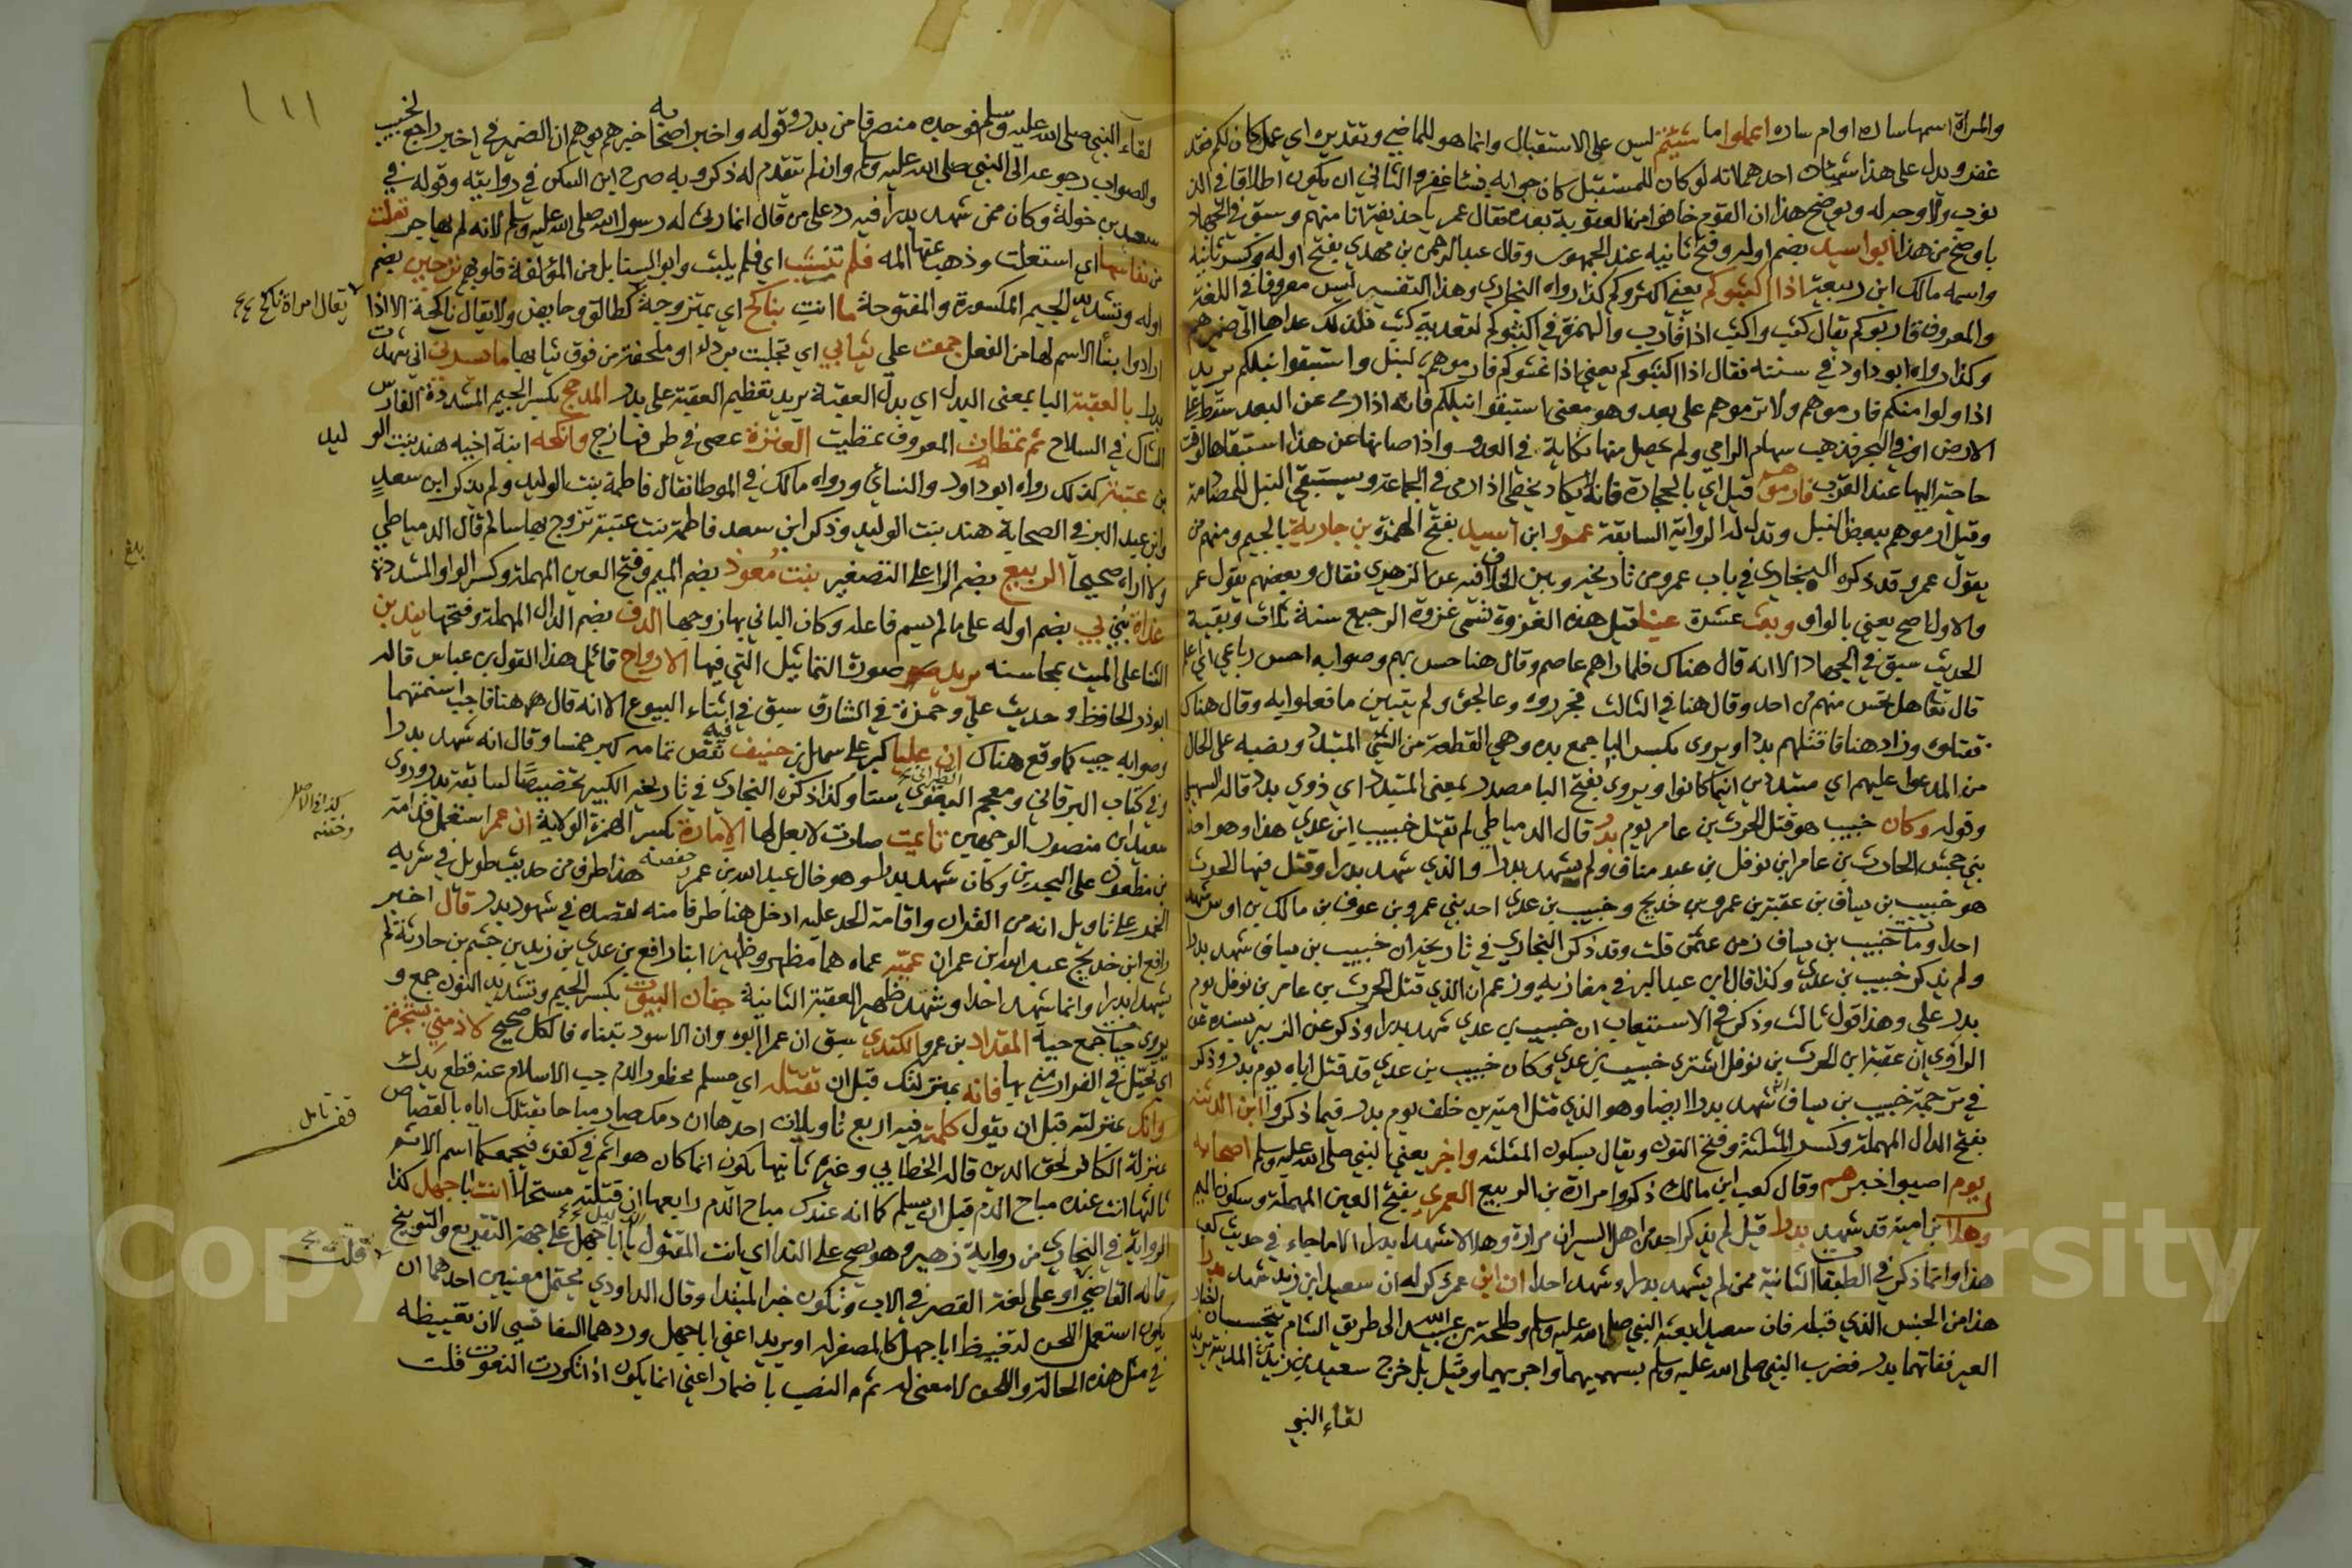 والمراة اسمها ساره او ام ساره اعملوا ما شئتم ليس على الاستقبال وانما هو للماضي وتقديره اي عمل كان لكم فقد
غفر ويدل على هذا شيئان احدهما انه لو كان للمستقبل كان جوابه فسأغفر والثاني ان يكون اطلاقا في الذ
نوب ولا وجه له ويوضح هذا ان القوم خافوا من العقوبة بعده فقال عمر يا حذيفة انا منهم وسبق في الجهاد
باوضح من هذا ابو اسيد بضم اوله وفتح ثانيه عند الجمهور وقال عبد الرحمن بن مهدي بفتح اوله وكسر ثانيه
واسمه مالك ابن ربيعة اذا اكثبوكم يعني اكثروكم كذا رواه البخاري وهذا التفسير ليس معروفا في اللغة
والمعروف قاربوكم يقال كثب واكثب اذا قارب والهمزة في اكثبوكم لتعدية كثب فلذلك عداها الى ضميرهم
وكذا رواه ابو داود في سننه فقال اذا اكثبوكم يعني اذا غشوكم فارموهم بالنبل واستبقوا نبلكم يريد
اذا ولوا منكم فارموهم ولا ترموهم على بعد وهو معنى استبقوا نبلكم فانه اذا رمى عن البعد سقط على
الارض او في البحر فذهب سهام الرامي ولم يحصل منها نكاية في العدو واذا صانها عن هذا استبقاها لوقت
حاجته اليها عند القرب فارموهم قيل اي بالحجارة فانه لا يكاد يخطي اذا رمى في الجماعة ويستبقي النبل للمصادمة
وقيل ارموهم ببعض النبل وتدل له الرواية السابقة عمرو ابن اسيد بفتح الهمزة بن جارية بالجيم ومنهم من
يقول عمر وقد ذكره البخاري في باب عمرو من تاريخه وبين الخلاف فيه عن الزهري فقال وبعضهم يقول عمر
والاول اصح يعني بالواو وبعث عشرة عينا قيل هذه الغزوة تسمى غزوة الرجيع سنة ثلاث وبقية
الحديث سبق في الجهاد الا انه قال هناك فلما راهم عاصم وقال هنا حس بهم وصوابه احس رباعي اي علم
قال تعالى هل تحس منهم من احد وقال هنا في الثالث فجرروه وعالجوه ولم يتبين ما فعلوا به وقال هناك
فقتلوه وزاد هنا فاقتلهم بددا ويروى بكسر البا جمع بده وهي القطعة من الشي المتبدد ونصبه على الحال
من المدعو عليهم اي متبددين اينما كانوا ويروى بفتح البا مصدر بمعنى المتبدد اي ذوي بدد قاله السهيلي
وقوله وكان خبيب هو قتل الحرث بن عامر يوم بدر قال الدمياطي لم يقتل خبيب ابن عدي هذا وهو احد
بني جحش الحارث بن عامر ابن نوفل بن عبد مناف ولم يشهد بدرا والذي شهد بدرا وقتل فيها الحرث
هو خبيب بن يساف بن عقبة بن عمرو بن خديج وخبيب بن عدي احد بني عمرو بن عوف بن مالك بن اوس شهد
احدا ومات خبيب بن يساف زمن عثمن قلت وقد ذكر البخاري في تاريخه ان خبيب بن يساف شهد بدرا
ولم يذكر خبيب بن عدي وكذا قال ابن عبد البر في مغازيه وزعم ان الذي قتل الحرث بن عامر بن نوفل يوم
بدر علي وهذا قول ثالث وذكر في الاستيعاب ان خبيب بن عدي شهد بدرا وذكر عن الزبير بسنده عن
الراوي ان عقبة ابن الحرث بن نوفل اشترى خبيب بن عدي وكان خبيب بن عدي قد قتل اباه يوم بدر وذكر
في ترجمة خبيب بن يساف انه شهد بدرا ايضا وهو الذي قتل امية بن خلف يوم بدر فيما ذكروا ابن الدثنه
بفتح الدال المهملة وكسر المثلثة وفتح النون ويقال بسكون المثلثه واخبر يعني النبي صلى الله عليه وسلم اصحابه
يوم اصيبوا خبرهم وقال كعب ابن مالك ذكروا مرارة بن الربيع العمري بفتح العين المهملة وسكون الميم
وهلال بن امية قد شهدا بدرا قيل لم يذكر احد من اهل السير ان مرارة وهلالا شهدا بدرا الا ما جاء في حديث كعب
هذا وانما ذكر في الطبقات الثانية ممن لم يشهد بدرا وشهد احدا ان ابن عمر ذكر له ان سعيد ابن زيد شهد بدرا
هذا من الجنس الذي قبله فان سعيدا بعثه النبي صلى الله عليه وسلم وطلحة بن عبيد الله الى طريق الشام يتحسسان اخبار
العير ففاتهما بدر فضرب النبي صلى الله عليه وسلم بسهميهما واجريهما وقيل بل خرج سعيد بن زيد من المدينة يريد
لقاء النبي
١١١
لقاء النبي صلى الله عليه وسلم فوجده منصرفا من بدر وقوله واخبر اصحابه خبرهم يوهم ان الضمير في اخبر راجع لخبيب
والصواب رجوعه الى النبي صلى الله عليه وسلم وان لم يتقدم له ذكر وبه صرح ابن السكن في روايته وقوله في
سعد بن خولة وكان ممن شهد بدرا فيه رد على من قال انما رثى له رسول الله صلى الله عليه وسلم لانه لم يهاجر تعلت
من نفاسها اي استعلت وذهب عنها المه فلم تنشب اي فلم يلبث وابو السنابل من المؤلفة قلوبهم ترجين بضم
اوله وتشديد الجيم المكسورة والمفتوحة ما انت بناكح اي بمتزوجة كطالق وحايض ولا يقال ناكحة الا اذا
يقال امراة ناكح
ارادوا بناء الاسم لها من الفعل جمعت علي ثيابي اي تجلبت برداء او ملحفة من فوق ثيابها ما يسرني اني شهدت
بدرا بالعقبة البا بمعنى البدل اي بدل العقبة يريد تعظيم العقبة على بدر المدجج بكسر الجيم المشددة الفارس
الشاك في السلاح ثم تمطات المعروف تمطيت العنزة عصى في طرفها زج وانكحه ابنة اخيه هند بنت الو
ليد
بن عتبة كذلك رواه ابو داود والنسائي ورواه مالك في الموطا فقال فاطمة بنت الوليد ولم يذكر ابن سعد
وابن عبد البر في الصحابة هند بنت الوليد وذكر ابن سعد فاطمة بنت عتبة تزوج بها سالم قال الدمياطي
ولا اراه صحيحا الربيع بضم الرا على التصغير بنت معوذ بضم الميم وفتح العين المهملة وكسر الواو المشددة
بلغ
غداة بني بي بضم اوله على ما لم يسم فاعله وكان الباني بها زوجها الدف بضم الدال المهملة وفتحها يندبن
الثنا على الميت بمحاسنه يريد صورة التماثيل التي فيها الارواح قائل هذا القول بن عباس قاله
ابوذر الحافظ وحديث علي وحمزة في الشارف سبق في اثناء البيوع الا انه قال هنا فاجب اسنمتهما
وصوابه جب كما وقع هناك ان عليا كبر على سهل بن حنيف نقص فيه تمامه كبر خمسا وقال انه شهد بدرا
وفي كتاب البرقاني ومعجم البغوي ستا وكذا ذكره البخاري في تاريخه الكبير تخصيصا لسابقة بدر وروى
سعيد بن منصور الوجهين تايمت صارت لا بعل لها الامارة بكسر الهمزة الولاية ان عمر استعمل قدامة
بن مظعون على البحرين وكان شهد بدرا وهو خال عبد الله بن عمر وحفصه هذا طرف من حديث طويل في شربه
الخمر على تاويل انه من القران واقامة الحد عليه ادخل هنا طرفا منه لقصده في شهود بدر قال اخبر
رافع ابن خديج عبد الله ابن عمر ان عميه عماه هما مظهر وظهير ابنا رافع بن عدي بن زيد بن جشم بن حارثة لم
يشهدا بدرا وانما شهدا احدا وشهد ظهير العقبة الثانية جنان البيوت بكسر الجيم وتشديد النون جمع و
يروى حيات جمع حية المقداد بن عمرو الكندي سبق ان عمرا ابوه وان الاسود تبناه فالكل صحيح لاذ مني بشجرة
اي تحيل في الفرار مني بها فانه بمنزلتك قبل ان تقتله اي مسلم محظور الدم جب الاسلام عنه قطع يدك
وانك بمنزلته قبل ان يقول كلمته فيه اربع تاويلات احدها ان دمك صار مباحا بقتلك اياه بالقصاص
قف تامل
بمنزلة الكافر لحق الدين قاله الخطابي وغيره ثانيها يكون انما كان هو اثم في كفره فيجمعكما اسم الاثم
ثالثها انت عنده مباح الدم قبل ان يسلم كما انه عندك مباح الدم رابعها ان قتلته مستحلا انت ابا جهل كذا
الرواية في البخاري من رواية زهير وهو يصح على الندا اي انت المقتول يا ابا جهل على جهة التقريع والتوبيخ
قاله القاضي او على لغة القصر في الاب ويكون خبر المبتدا وقال الداودي يحتمل معنيين احدهما ان
يكون استعمل اللحن لتغييظ ابا جهل كالمصغر له او يريد اعني ابا جهل وردهما السفاقسي لان تغييظه
في مثل هذه الحالة واللحن لا معنى له ثم النصب باضمار اعني انما يكون اذا تكررت النعوت قلت